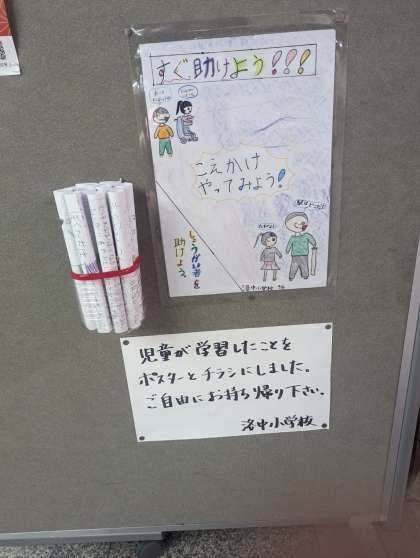 すぐ助けよう!!!
こえかけ
やってみよう!
しょうがい者を
助けよう
洛中小学校
児童が学習したことを
ポスターとチラシにしました。
ご自由にお持ち帰り下さい。
洛中小学校